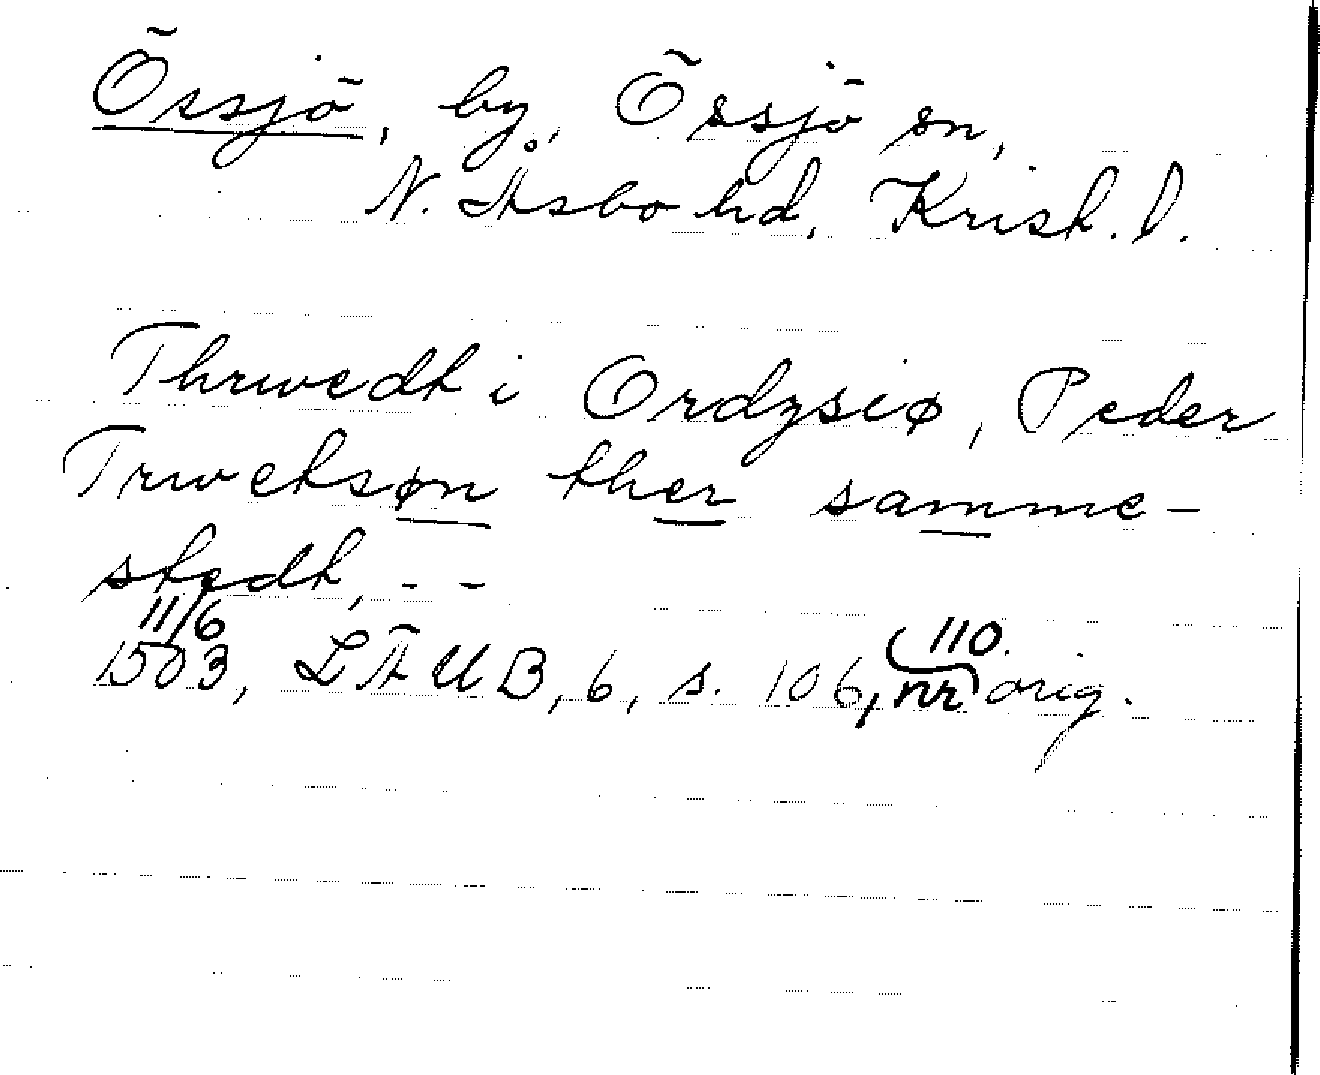 Össjö, by, Össjö sn,
N. Åsbo hd, Krist. l.
Thrwedt i Ordzsiø, Peder
Trwetsøn ther samme-
stedt, - -
11/6
1503, LÄUB, 6, s. 106, nr 110. orig.